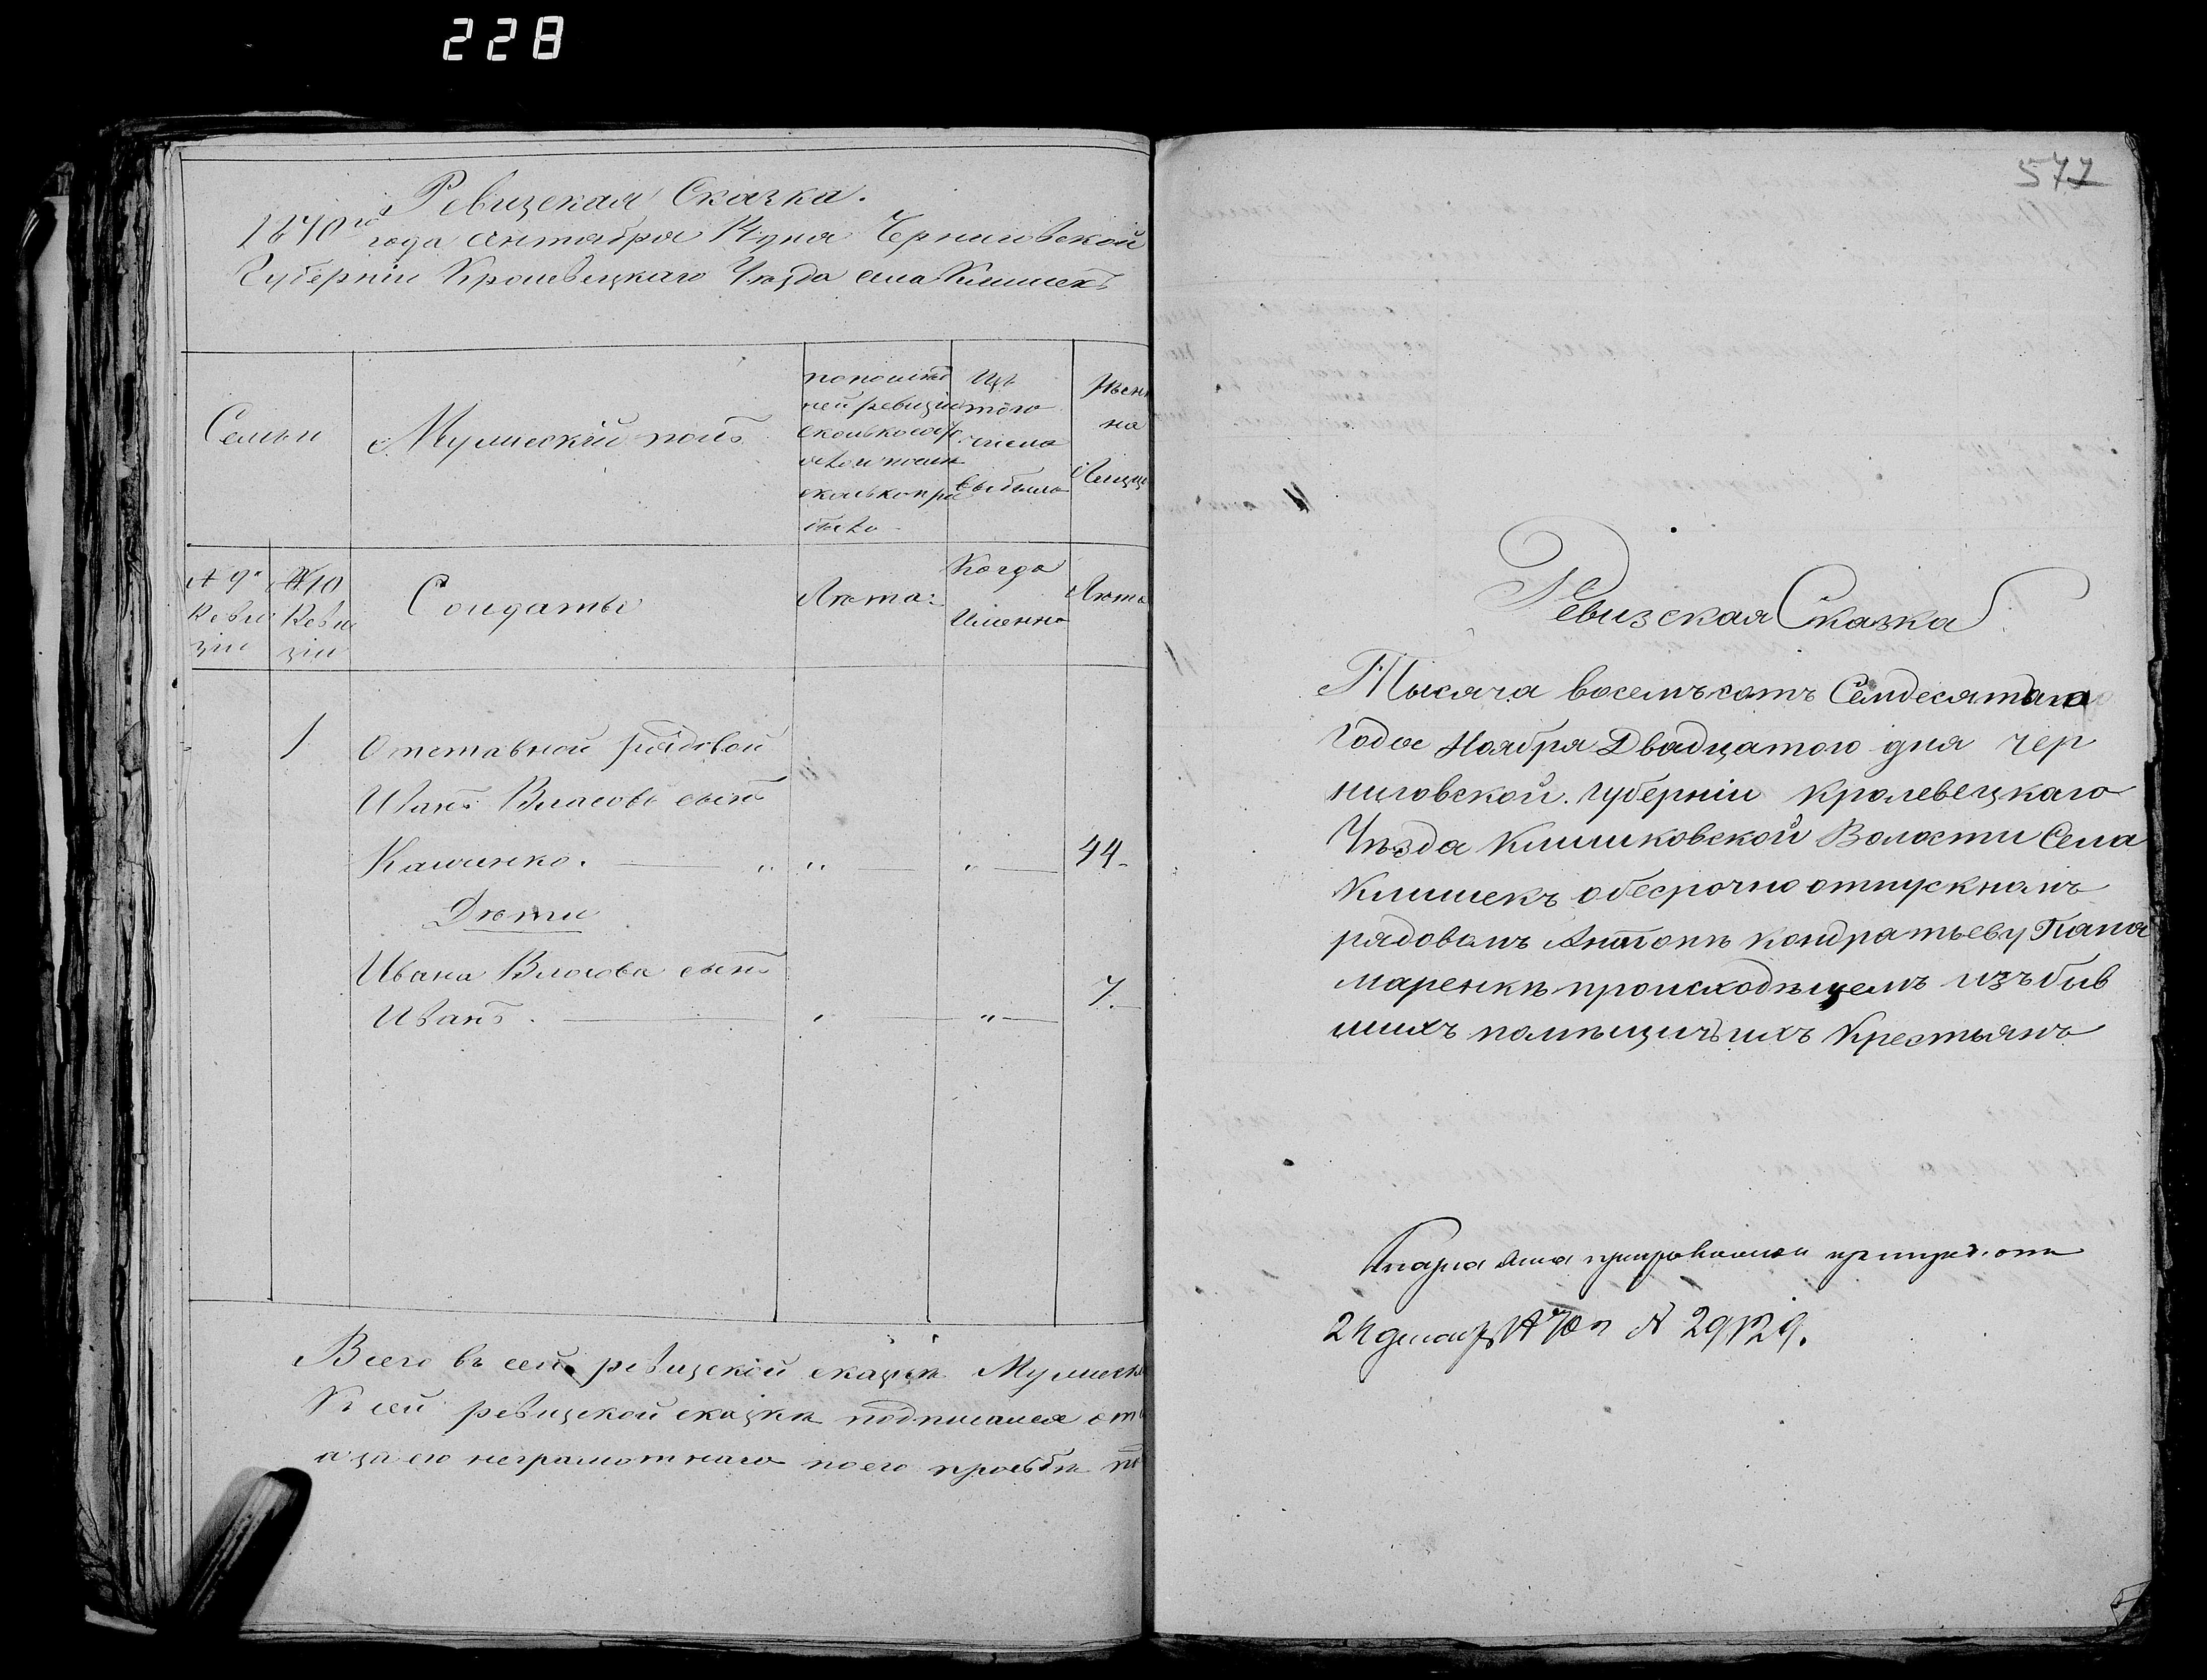 228
Ревизская Сказка.
1870го года Октября 14 дня Черниговской
Губерніи Кролевецкаго Уѣзда села Клишекъ
Семьи
Мужескій полъ
по послѣд
ней ревизіи
сколько
сколько при
было
Изъ
того
числа
выбыло
Нын
на
Лицо
№ 9й
Реви
зіи
№ 10
Реви
зіи
Солдаты
Лѣта
Когда
Именно
Лѣта
1
Отставной рядовой
Иванъ Власовъ сынъ
Кашенко. 44
Дѣти
Ивана Власова сынъ
Иванъ. 7
Всего въ сей ревизской сказкѣ Мужеск
К сей ревизской сказкѣ подписался от
а за его неграмотнаго по его прозьбѣ
577
Ревизская Сказка
Тысяча восемъсотъ Семдесятаго
Года Ноября Двадцатого дня чер
ниговской губерніи Кролевецкаго
Уѣзда Клишковской Волости Села
Клишекъ обесрочно отпускномъ
рядовомъ Антонѣ Кондратьеву Пана
маренкѣ происходящемъ изъ быв
шихъ помѣщичьихъ Крестьянъ
№ 29129.